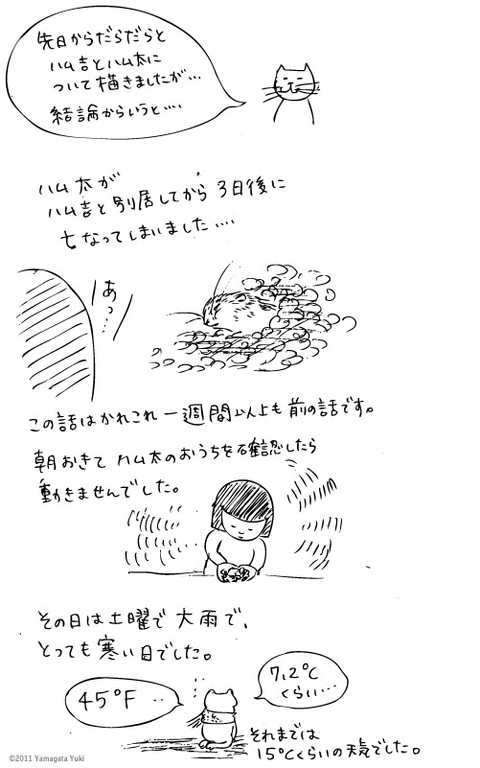 先日からだらだらと
ハム吉とハム太に
ついて描きましたが…
結論からいうと….
ハム太が
ハム吉と別居してから3日後に
亡なってしまいました….
あっ…
この話はかれこれ一週間以上も前の話です。
朝おきてハム太のおうちを確認したら
動きませんでした。
その日は土曜で大雨で、
とっても寒い日でした。
45°F
7.2℃
くらい…
それまでは
15℃くらいの天気でした。
©2011 Yamagata Yuki